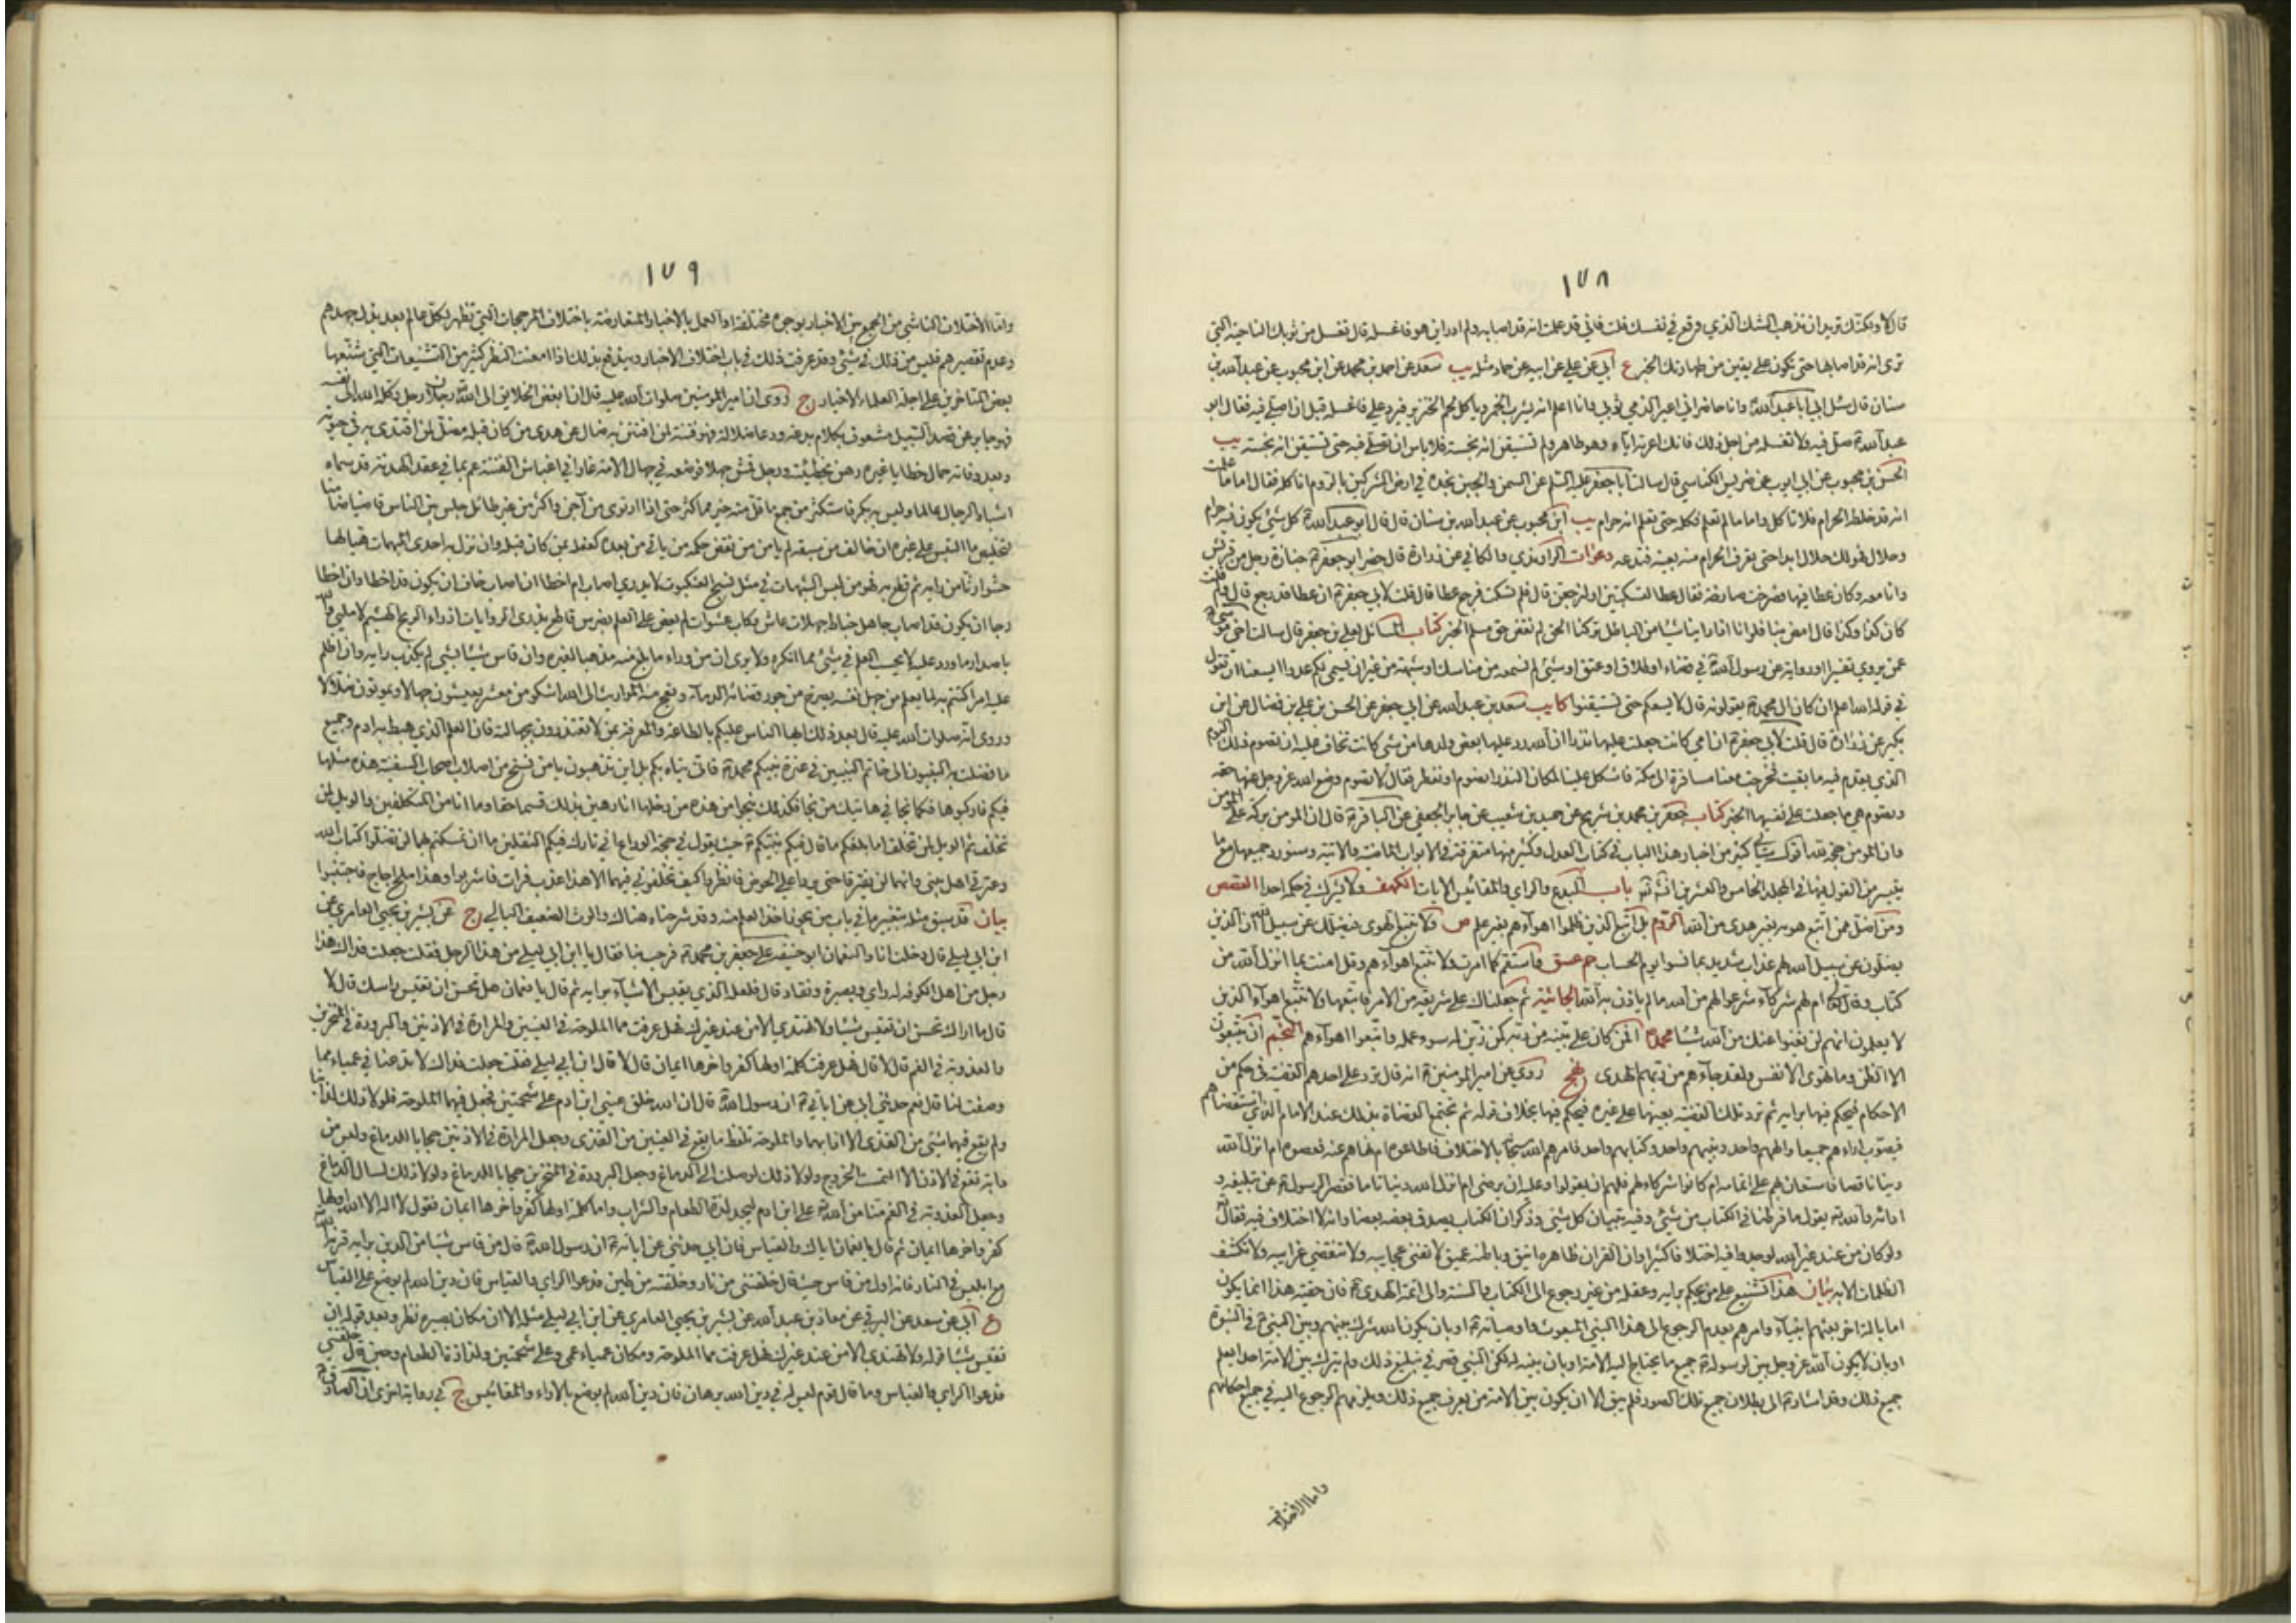 ١٧٨
قال لا ولكنك تريد ان تذهب الشك الذي وقع في نفسك قلت فاني قد علمت انه قد اصابه ولم ادر اين هو فاغسله قال تغسل من ثوبك الناحية التي
ترى انه قد اصابها حتى تكون على يقين من طهارتك الخبر ع أبي عن علي عن ابيه عن حماد مثله يب سعد عن احمد بن محمد عن ابن محبوب عن عبد الله بن
سنان قال سئل ابي ابا عبد الله وانا حاضر اني اعير الذمي ثوبي وانا اعلم انه يشرب الخمر وياكل لحم الخنزير فيرد علي فاغسله قبل ان اصلي فيه فقال ابو
عبد الله صل فيه ولا تغسله من اجل ذلك فانك اعرته اياه وهو طاهر ولم تستيقن انه نجسه فلا باس ان تصلي فيه حتى تستيقن انه نجسه يب
الحسن بن محبوب عن ابي ايوب عن ضريس الكناسي قال سالت ابا جعفر عليه السلم عن السمن والجبن نجده في ارض المشركين بالروم اناكله فقال اما ما علمت
انه قد خلطه الحرام فلا تاكل واما ما لم تعلم فكله حتى تعلم انه حرام يب ابن محبوب عن عبد الله بن سنان قال قال ابو عبد الله كل شئ يكون فيه حرام
وحلال فهو لك حلال ابدا حتى تعرف الحرام منه بعينه فتدعه دعوات الراوندي والكافي عن زرارة قال حضر ابو جعفر جنازة رجل من قريش
وانا معه وكان عطا فيها فصرخت صارخة فقال عطا لتسكتن او لنرجعن قال فلم تسكت فرجع عطا قال قلت لابي جعفر ان عطا قد رجع قال ولم قلت
كان كذا وكذا قال امض بنا فلو انا اذا راينا شئا من الباطل تركنا الحق لم نقض حق مسلم الخبر كتاب المسائل لعلي بن جعفر قال سالت اخي موسى
عمن يروي تفسيرا او رواية عن رسول الله في قضاء او طلاق او عتق او شئ لم نسمعه من مناسك او شبهه من غير ان يسمي لكم عدوا ايسعنا ان نقول
في قوله الله اعلم ان كان ال محمد يقولونه قال لا يسعكم حتى تستيقنوا كا يب سعد بن عبد الله عن ابي جعفر عن الحسن بن علي بن فضال عن ابن
بكير عن زرارة قال قلت لابي جعفر ان امي كانت جعلت عليها نذرا ان الله رد عليها بعض ولدها من شئ كانت تخاف عليه ان تصوم ذلك اليوم
الذي يقدم فيه ما بقيت فخرجت معنا مسافرة الى مكة فاشكل علينا لمكان النذر اتصوم او تفطر فقال لا تصوم وضع الله عز وجل عنها حقه
وتصوم هي ما جعلت على نفسها الخبر كتاب جعفر بن محمد بن شريح عن حميد بن شعيب عن جابر الجعفي عن الباقر قال ان المؤمن بركة على المؤمن
وان المؤمن حجة لله اقول سياتي كثير من اخبار هذا الباب في كتاب العدل وكثير منها متفرقة في الابواب الماضية والاتية وسنورد جميعها مع ما
يتيسر من القول فيها في المجلد الخامس والعشرين انشاء الله باب البدع والراي والمقائيس الايات الكهف ولا يشرك في حكمه احدا القصص
ومن اضل ممن اتبع هويه بغير هدى من الله الروم بل اتبع الذين ظلموا اهواءهم بغير علم ص ولا تتبع الهوى فيضلك عن سبيل الله ان الذين
يضلون عن سبيل الله لهم عذاب شديد بما نسوا يوم الحساب حم عسق واستقم كما امرت ولا تتبع اهواءهم وقل امنت بما انزل الله من
كتاب وقال ام لهم شركاء شرعوا لهم من الدين ما لم ياذن به الله الجاثية ثم جعلناك على شريعة من الامر فاتبعها ولا تتبع اهواء الذين
لا يعلمون انهم لن يغنوا عنك من الله شيئا محمد افمن كان على بينة من ربه كمن زين له سوء عمله واتبعوا اهواءهم النجم ان يتبعون
الا الظن وما تهوى الانفس ولقد جاءهم من ربهم الهدى نهج روي عن امير المؤمنين انه قال ترد على احدهم القضية في حكم من
الاحكام فيحكم فيها برايه ثم ترد تلك القضية بعينها على غيره فيحكم فيها بخلاف قوله ثم تجتمع القضاة بذلك عند الامام الذي استقضاهم
فيصوب اراءهم جميعا والههم واحد ونبيهم واحد وكتابهم واحد فامرهم الله سبحانه بالاختلاف فاطاعوه ام نهاهم عنه فعصوه ام انزل الله
دينا ناقصا فاستعان بهم على اتمامه ام كانوا شركاء لهم فلهم ان يقولوا وعليه ان يرضى ام انزل الله دينا تاما فقصر الرسول عن تبليغه و
ادائه والله يقول ما فرطنا في الكتاب من شئ وفيه تبيان كل شئ وذكر ان الكتاب يصدق بعضه بعضا وانه لا اختلاف فيه فقال
ولو كان من عند غير الله لوجدوا فيه اختلافا كثيرا وان القران ظاهره انيق وباطنه عميق لا تفنى عجايبه ولا تنقضي غرايبه ولا تكشف
الظلمات الا به بيان هذا تشنيع على من يحكم برايه وعقله من غير رجوع الى الكتاب والسنة والى ائمة الهدى فان حقية هذا انما يكون
اما باله اخر بعثهم انبياء وامرهم بعدم الرجوع الى هذا النبي المبعوث واوصيائه او بان يكون الله شرك بينهم وبين النبي في النبوة
او بان لا يكون الله عز وجل بين لرسوله جميع ما يحتاج اليه الامة او بان بينه له لكن النبي قصر في تبليغ ذلك ولم يترك بين الامة احدا يعلم
جميع ذلك وقد اشار الى بطلان جميع تلك الصور فلم يبق الا ان يكون بين الامة من يعرف جميع ذلك ويلزمهم الرجوع اليه في جميع احكامهم
واما الاختلاف
١٧٩
واما الاختلاف الناشي من الجمع بين الاخبار بوجوه مختلفة او العمل بالاخبار المتعارضة باختلاف المرجحات التي تظهر لكل عالم بعد بذل جهدهم
وعدم تقصيرهم فليس من ذلك في شئ وقد عرفت ذلك في باب اختلاف الاخبار ويندفع بذلك اذا امعنت النظر كثير من التشنيعات التي شنعها
بعض المتاخرين على اجلة العلماء الاخيار ج روي ان امير المؤمنين صلوات الله عليه قال ان ابغض الخلايق الى الله رجلان رجل وكله الله الى نفسه
فهو جاير عن قصد السبيل مشعوف بكلام بدعة ودعاء ضلالة فهو فتنة لمن افتتن به ضال عن هدى من كان قبله مضل لمن اقتدى به في حيوته
وبعد وفاته حمال خطايا غيره رهن بخطيئته ورجل قمش جهلا فوضعه في جهال الامة غار في اغباش الفتنة عم بما في عقد الهدنة قد سماه
اشباه الرجال عالما وليس به بكر فاستكثر من جمع ما قل منه خير مما كثر حتى اذا ارتوى من آجن واكثر من غير طائل جلس بين الناس قاضيا ضامنا
لتخليص ما التبس على غيره ان خالف من سبقه لم يامن من نقض حكمه من ياتي من بعده كفعله بمن كان قبله وان نزل به احدى المبهمات هيا لها
حشوا رثا من رايه ثم قطع به فهو من لبس الشبهات في مثل نسج العنكبوت لا يدري اصاب ام اخطا ان اصاب خاف ان يكون قد اخطا وان اخطا
رجا ان يكون قد اصاب جاهل خباط جهلات عاش ركاب عشوات لم يعض على العلم بضرس قاطع يذري الروايات اذراء الريح الهشيم لا ملي والله
باصدار ما ورد عليه لا يحسب العلم في شئ مما انكره ولا يرى ان من وراء ما بلغ منه مذهبا لغيره وان قاس شيئا بشئ لم يكذب رايه وان اظلم
عليه امر اكتتم به لما يعلم من جهل نفسه يصرخ من جور قضائه الدماء وتعج منه المواريث الى الله اشكو من معشر يعيشون جهالا ويموتون ضلالا
وروي انه صلوات الله عليه قال بعد ذلك ايها الناس عليكم بالطاعة والمعرفة بمن لا تعتذرون بجهالته فان العلم الذي هبط به ادم وجميع
ما فضلت به النبيون الى خاتم النبيين في عترة نبيكم محمد فانى يتاه بكم بل اين تذهبون يا من نسخ من اصلاب اصحاب السفينة هذه مثلها
فيكم فاركبوها فكما نجا في هاتيك من نجا فكذلك ينجو في هذه من دخلها انا رهين بذلك قسما حقا وما انا من المتكلفين والويل لمن
تخلف ثم الويل لمن تخلف اما بلغكم ما قال فيكم نبيكم حيث يقول في حجة الوداع اني تارك فيكم الثقلين ما ان تمسكتم بهما لن تضلوا كتاب الله
وعترتي اهل بيتي وانهما لن يفترقا حتى يردا علي الحوض فانظروا كيف تخلفوني فيهما الا هذا عذب فرات فاشربوا وهذا ملح اجاج فاجتنبوا
بيان قد سبق مثله بتغيير ما في باب من يجوز اخذ العلم منه وقد شرحناه هناك والرث الضعيف البالي ج عن بشير بن يحيى العامري عن
ابن ابي ليلى قال دخلت انا والنعمان ابو حنيفة على جعفر بن محمد فرحب بنا فقال يا ابن ابي ليلى من هذا الرجل فقلت جعلت فداك هذا
رجل من اهل الكوفة له راي وبصيرة ونفاد قال فلعله الذي يقيس الاشياء برايه ثم قال يا نعمان هل تحسن ان تقيس راسك قال لا
قال ما اراك تحسن ان تقيس شيئا ولا تهتدي الا من عند غيرك فهل عرفت مما الملوحة في العينين والمرارة في الاذنين والبرودة في المنخرين
والعذوبة في الفم قال لا قال فهل عرفت كلمة اولها كفر واخرها ايمان قال لا قال ابن ابي ليلى فقلت جعلت فداك لا تدعنا في عمياء مما
وصفت لنا قال نعم حدثني ابي عن ابائي ان رسول الله قال ان الله خلق عيني ابن ادم على شحمتين فجعل فيهما الملوحة فلولا ذلك لذابتا
ولم يقع فيهما شئ من القذى الا اذابهما والملوحة تلفظ ما يقع في العينين من القذى وجعل المرارة في الاذنين حجابا للدماغ وليس من
دابة تقع في الاذن الا التمست الخروج ولولا ذلك لوصلت الى الدماغ وجعل البرودة في المنخرين حجابا للدماغ ولولا ذلك لسال الدماغ
وجعل العذوبة في الفم منا من الله على ابن ادم ليجد لذة الطعام والشراب واما كلمة اولها كفر واخرها ايمان فقول لا اله الا الله اولها
كفر واخرها ايمان ثم قال يا نعمان اياك والقياس فان ابي حدثني عن ابائه ان رسول الله قال من قاس شيئا من الدين برايه قرنه الله
مع ابليس في النار فانه اول من قاس حيث قال خلقتني من نار وخلقته من طين فدعوا الراي والقياس فان دين الله لم يوضع على القياس
ع أبي عن سعد عن البرقي عن معاذ بن عبد الله عن بشير بن يحيى العامري عن ابن ابي ليلى مثله الا ان مكان بصيرة نظر وبعد قوله ان
تقيس شيئا قوله ولا تهتدي الا من عند غيرك فهل عرفت مما الملوحة ومكان عمياء عمى وعلى شحمتين ولذاذة الطعام وحين قال خلقتني
فدعوا الراي والقياس وما قال قوم ليس له في دين الله برهان فان دين الله لم يوضع بالاراء والمقائيس ج في رواية اخرى ان الصادق